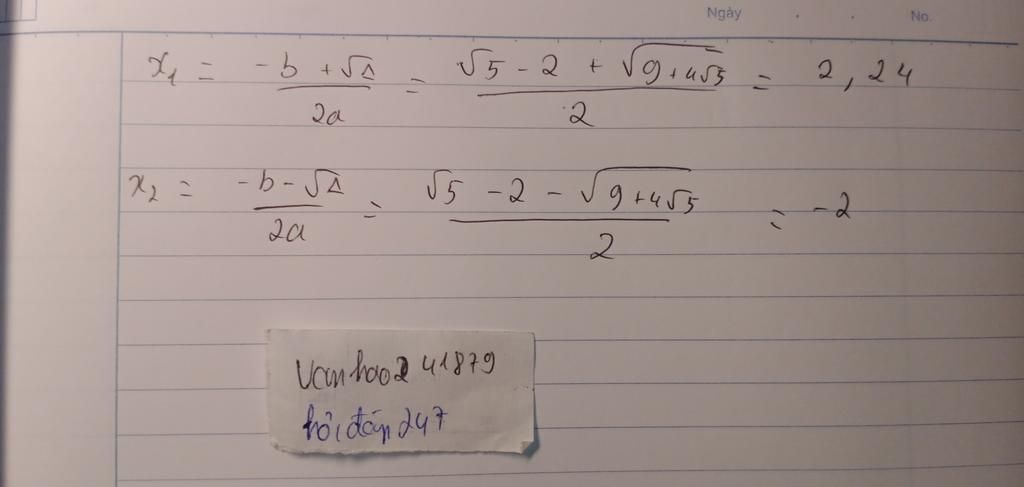 Ngày . . No.
x₁ = (-b + √Δ)/(2a) = (√5 - 2 + √(9+4√5))/2 = 2,24
x₂ = (-b - √Δ)/(2a) = (√5 - 2 - √(9+4√5))/2 = -2
Vanhao241879
hỏi đáp 247